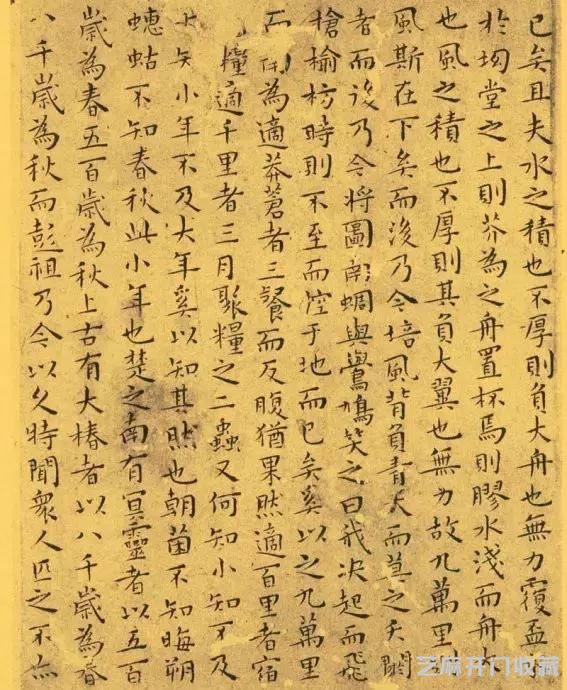 已矣且夫水之積也不厚則負大舟也無力覆盃
於坳堂之上則芥為之舟置杯焉則膠水淺而舟大
也風之積也不厚則其負大翼也無力故九萬里
風斯在下矣而後乃今培風背負青天而莫之夭閼
者而後乃今將圖南蜩與鷽鳩笑之曰我決起而飛
槍榆枋時則不至而控于地而已矣奚以之九萬里
而南為適莽蒼者三餐而反腹猶果然適百里者宿
糧適千里者三月聚糧之二蟲又何知小知不及
大知小年不及大年奚以知其然也朝菌不知晦朔
蟪蛄不知春秋此小年也楚之南有冥靈者以五百
歲為春五百歲為秋上古有大椿者以八千歲為春
八千歲為秋而彭祖乃今以久特聞眾人匹之不亦
芝麻开门收藏